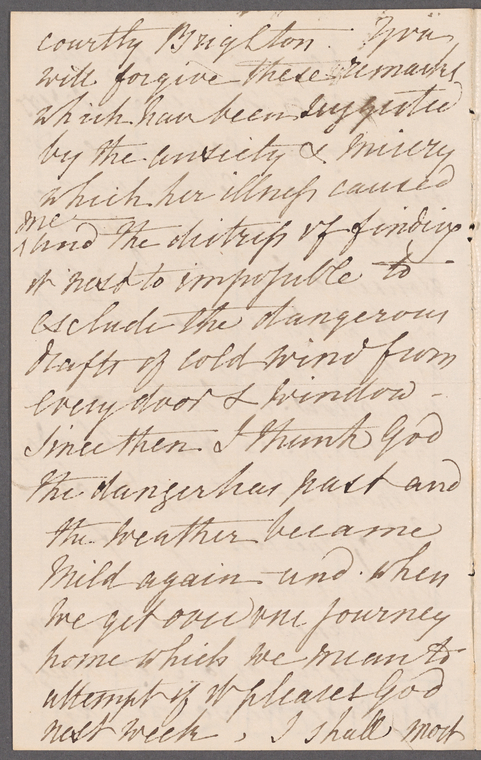 courtly Brighton. You
will forgive these remarks
which hav been suggested
by the anxiety & misery
which her illness caused
me
and the distress of finding
it next to impossible to
exclude the dangerous
drafts of cold wind from
every door & window -
Since then I thank God
the danger has past and
the weather became
Mild again and when
We get over our journey
home which we mean to
attempt if it pleases God
next week, I shall most